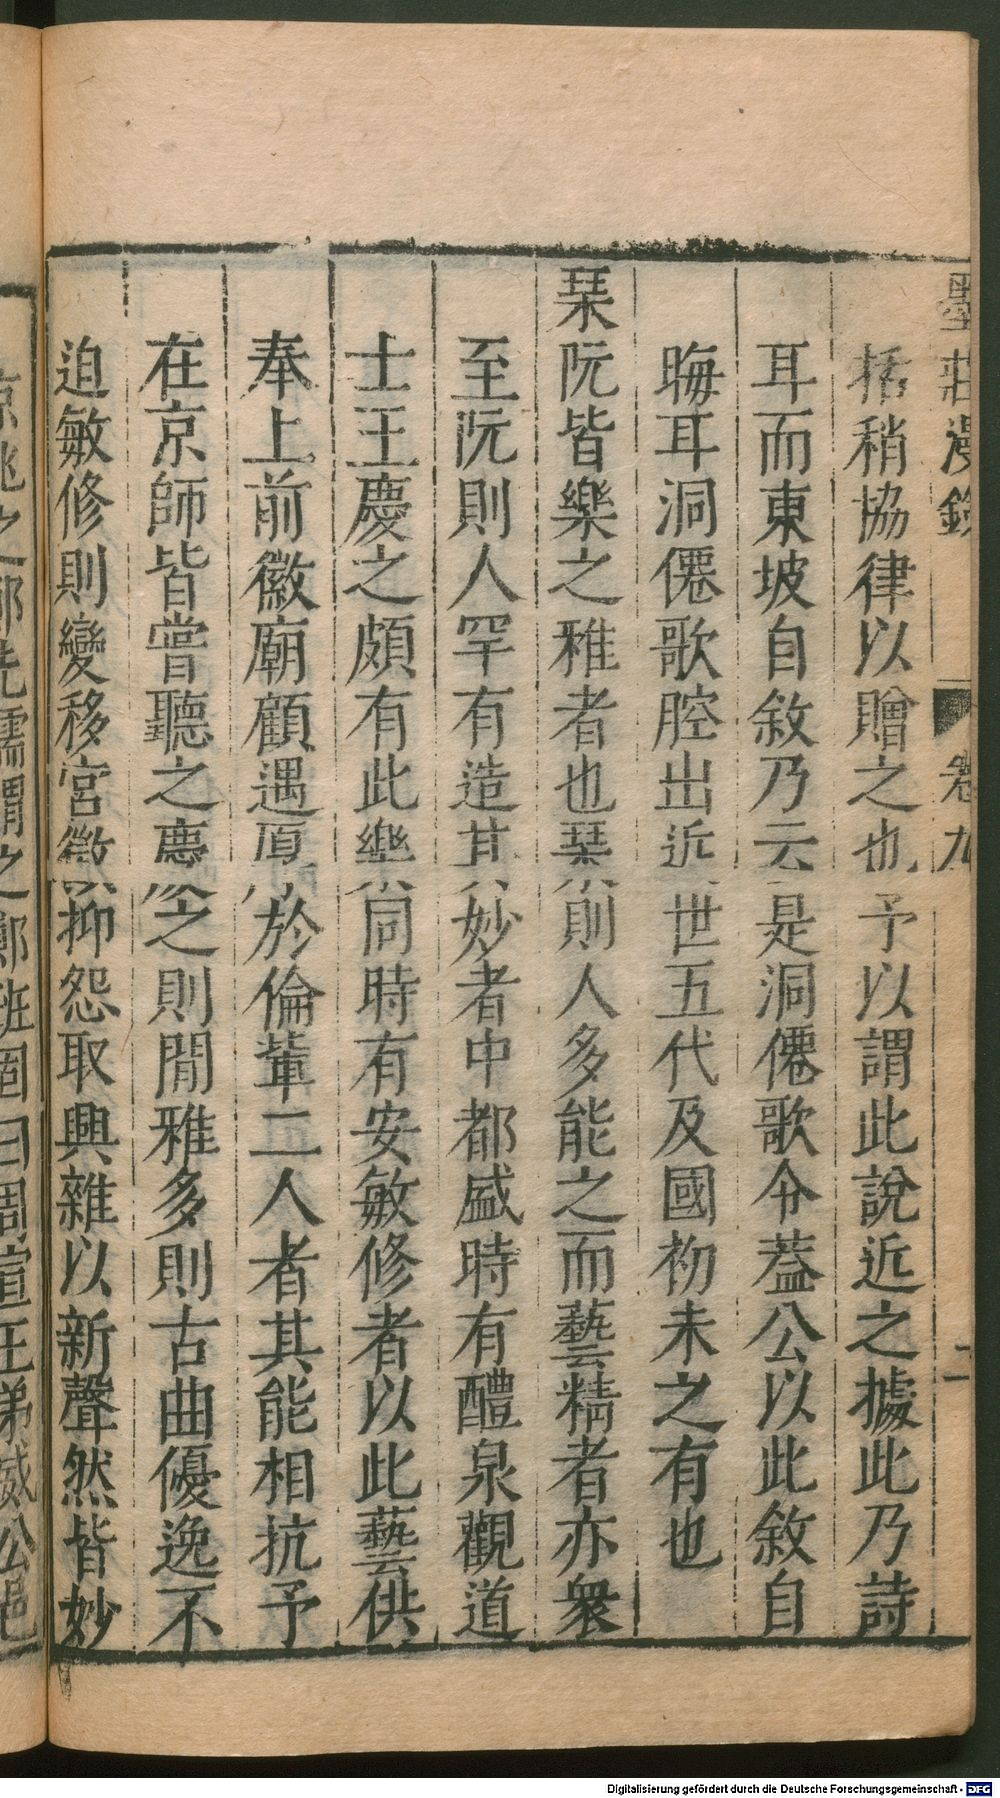 墨莊漫錄 卷九 二
括稍協律以贈之也予以謂此說近之據此乃詩
耳而東坡自敘乃云是洞僊歌令蓋公以此敘自
晦耳洞僊歌腔出近世五代及國初未之有也
琹阮皆樂之雅者也琹則人多能之而藝精者亦衆
至阮則人罕有造其妙者中都盛時有醴泉觀道
士王慶之頗有此樂同時有安敏修者以此藝供
奉上前徽廟顧遇厚於倫輩二人者其能相抗予
在京師皆嘗聽之慶之則閒雅多則古曲優逸不
迫敏修則變移宮徵抑怨取興雜以新聲然皆妙
之鄭班固曰周宣王弟威公邑
Digitalisierung gefördert durch die Deutsche Forschungsgemeinschaft - DFG